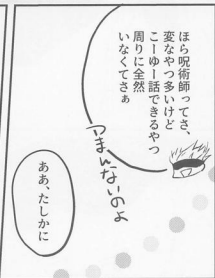 ほら呪術師ってさ、
変なやつ多いけど
こーゆー話できるやつ
周りに全然
いなくてさぁ
つまんないのよ
ああ、たしかに